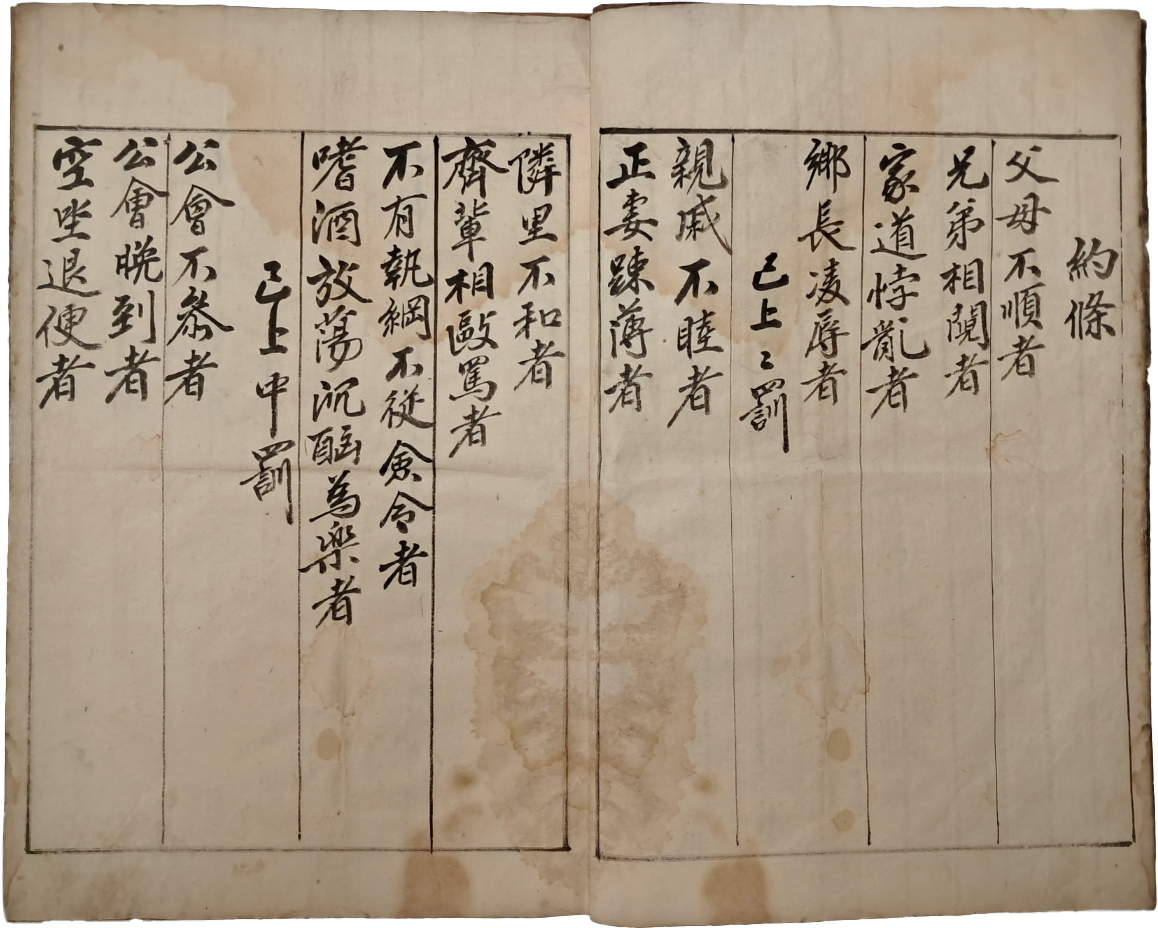 約條
父母不順者
兄弟相鬩者
家道悖亂者
鄕長凌辱者
已上〻罰
親戚不睦者
正妻踈薄者
隣里不和者
齊輩相毆罵者
不有執綱不從僉令者
嗜酒放蕩沉酗為樂者
已上中罰
公會不叅者
公會晩到者
空坐退便者